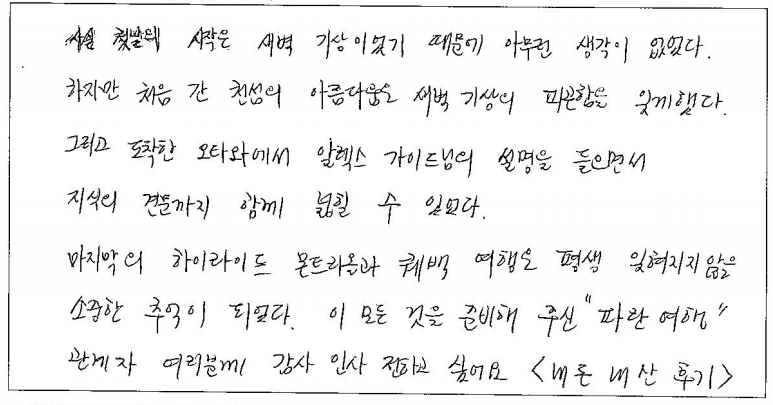 사실 첫날의 시작은 새벽 기상이었기 때문에 아무런 생각이 없었다.
하지만 처음 간 천섬의 아름다움은 새벽 기상의 피곤함을 잊게했다.
그리고 도착한 오타와에서 알렉스 가이드님의 설명을 들으면서
지식의 견문까지 함께 넓힐 수 있었다.
마지막의 하이라이트 몬트리올과 퀘백 여행은 평생 잊혀지지 않을
소중한 추억이 되었다. 이 모든 것을 준비해 주신 "파란여행"
관계자 여러분께 감사 인사 전하고 싶어요 <내돈 내산 후기>